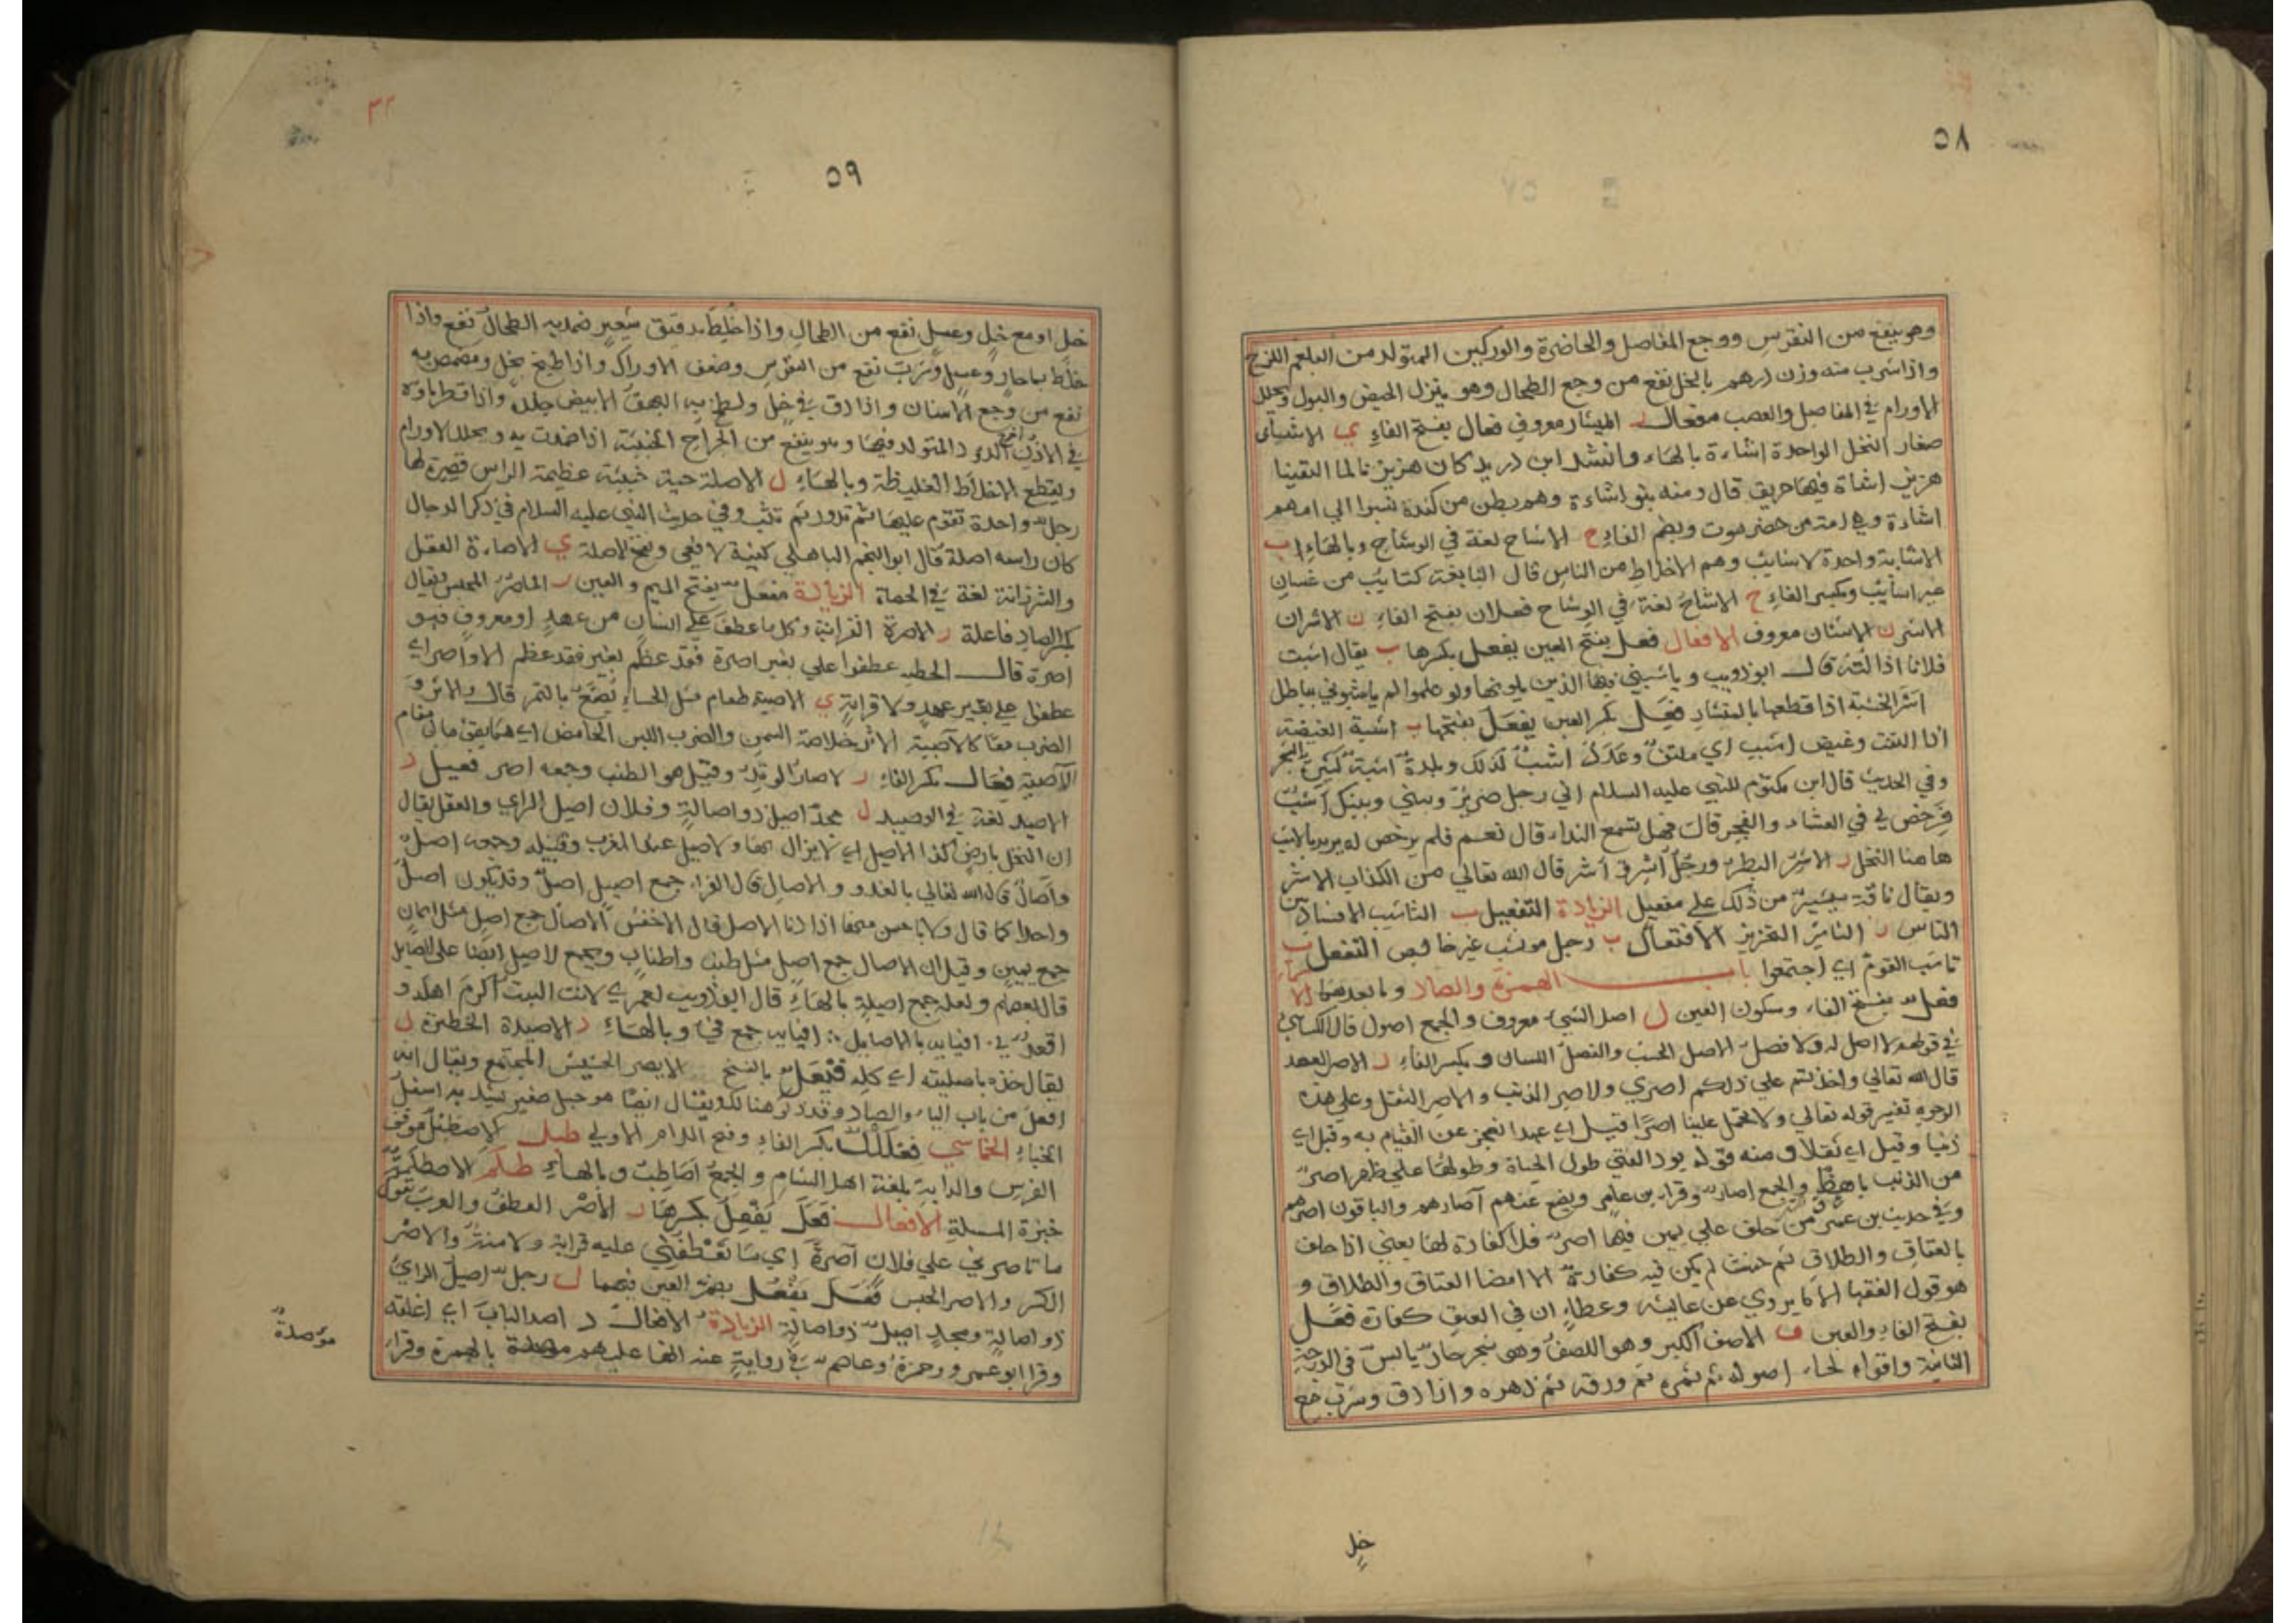 ٥٨
وهو ينفع من النقرس ووجع المفاصل والخاصرة والوركين المتولد من البلغم اللزج
واذا شرب منه وزن درهم بالخل نفع من وجع الطحال وهو ينزل الحيض والبول ويحلل
الاورام في المفاصل والعصب مفعال ر الميشار معروف فعال بفتح الفاءِ ي الاشاى
صغار النخل الواحدة اشاءة بالهاء وانشد ابن دريد كان هزيزنا لما التقينا
هزيز اشاة فيها حريق قال ومنه بنو اشاءة وهم بطن من كندة نسبوا الي امهم
اشاءة وهي امة من حضرموت وبضم الفاءِ ح الاشاح لغة في الوشاح وبالهاءِ ب
الاشابة واحدة الاشايب وهم الاخلاط من الناس قال النابغة كتايب من غسان
غير اشايب وبكسر الفاءِ ح الاشاح لغة في الوشاح فعلان بفتح الفاءِ ن الاشران
الاشر ن الاشنان معروف الافعال فعل بفتح العين يفعل بكسرها ب يقال اشبت
فلانا اذا لمته قال ابو ذويب وياشبني فيها الذين يلونها ولو علموا لم ياشبوني بباطل
اشر الخشبة اذا قطعها بالمنشار فعِل بكسر العين يفعَل بفتحها ب اشبة الغيضة
اذا التفت وغيض اشب اي ملتف وعدد اشب كذلك وبلدة اشبة كثيرة الشجر
وفي الحديث قال ابن مكتوم للنبي عليه السلام اني رجل ضرير وبيني وبينك اشب
فرخص لي في العشاء والفجر قال فهل تسمع النداء قال نعم فلم يرخص له يريد بالاشب
هاهنا النخل ر الاشر البطر ورجل اشر في اشر قال الله تعالي من الكذاب الاشر
ويقال ناقة ميشير من ذلك علي مفعيل الزيادة التفعيل ب التاشيب الافساد بين
الناس ر التاشير التحزيز الافتعال ب رجل موتشب غير خالص التفعل ب
تاشب القوم اي اجتمعوا باب الهمزة والصاد وما بعدهما
فعل بفتح الفاء وسكون العين ل اصل الشيء معروف والجمع اصول قال الكساي
في قولهم لا اصل له ولا فصل الاصل الحسب والفصل اللسان وبكسر الفاءِ ر الاصر العهد
قال الله تعالي واخذتم علي ذلكم اصري والاصر الذنب والاصر الثقل وعلي هذه
الوجوه تفسير قوله تعالي ولا تحمل علينا اصرا قيل اي عهدا نعجز عن القيام به وقيل اي
ذنبا وقيل اي ثقلا ومنه قوله يود الفتي طول الحياة وطولها علي ظهر اصر
من الذنب باهظ والجمع اصار وقراء بن عامر ويضع عنهم آصارهم والباقون اصرهم
وفي حديث بن عمر من حلف علي يمين فيها اصر فلا كفارة لها يعني اذا حلف
بالعتاق والطلاق ثم حنث لم يكن فيه كفارة الا امضا العتاق والطلاق و
هو قول الفقها الا ما يروي عن عايشه وعطاء ان في العتق كفارة فعَل
بفتح الفاء والعين ف الاصف الكبر وهو اللصف وهي شجر حار يابس في الدرجة
الثانية واقواه لحاء اصوله ثم ثمره ثم ورقه ثم زهره واذا دق وشرب مع
خل
٣٢
٥٩
خل او مع خل وعسل نفع من الطحال واذا خلط بدقيق شعير ضمد به الطحال نفع واذا
خلط بماء حار وعسل وشرب نفع من النقرس وضعف الاوراك واذا طبخ بخل ومضمض به
نفع من وجع الاسنان واذا دق في خل ولطخ به البهق الابيض جلاه واذا قطر ماؤه
في الاذن اخرج الدود المتولد فيها وهو ينفع من الجراح الخبيثة اذا ضمدت به ويحلل الاورام
ويقطع الاخلاط الغليظة وبالهاءِ ل الاصلة حية خبيثة عظيمة الراس قصيرة لها
رجل واحدة تقوم عليها ثم تدور ثم تثب وفي حديث النبي عليه السلام في ذكر الدجال
كان راسه اصلة قال ابو النجم الباهلي ي الاصاءة العقل
والرزانة لغة في الحصاة الزيادة مفعل بفتح الميم والعين ر الماصر المحبس ويقال
بكسر الصاد فاعلة ر الاصرة القرابة وكل ما عطف علي انسان من عهد او معروف فهو
اصرة قال الحطيه عطفوا علي بغير اصرة فقد عظم الاواصر اي
عطفوا علي بغير عهد ولا قرابة ي الاصية طعام مثل الحساء يصنع بالتمر قال والاثر و
الضرب معا كالآصية الاثر خلاصة السمن والضرب اللبن الحامض اي هما يقومان مقام
الآصية فِعال بكسر الفاءِ ر الاصار الوتد وقيل هو الطنب وجمعه اصر فعيل د
الاصيد لغة في الوصيد ل مجد اصيل ذو اصالة وفلان اصيل الراي والعقل يقال
ان النخل بارض كذا الاصيل اي لا يزال بها والاصيل عند المغرب وقبيله وجمعه اصل
وآصال قال الله تعالي بالغدو والاصال قال الفراء جمع اصيل اصل وقد يكون اصل
واحدا كما قال ولا باحسن منها اذا دنا الاصل قال الاخفش الاصال جمع اصل مثل ايمان
جمع يمين وقيل ان الاصال جمع اصل مثل طنب واطناب ويجمع الاصيل ايضا علي اصايل
قال بعضهم ولعله جمع اصيلة بالهاءِ قال ابو ذويب لعمري لانت البيت اكرم اهله و
اقعد في افيايه بالاصايل افيايه جمع في وبالهاءِ د الاصيدة الحظيرة ل
يقال خذه باصيلته اي كله فيعل بالفتح الايصر الحشيش المجتمع ويقال انه
افعل من باب الياء والصاد وقد ذكر هنالك ويقال ايضا هو حبل صغير يشد به اسفل
الخباءِ الخماسي فعلل بكسر الفاءِ وفتح اللام الاولي طبل الاصطبل موقف
الفرس والدابة بلغة اهل الشام والجمع اصاطب وبالهاءِ طلم الاصطلمة
خبزة الملة الافعال فعَل يفعِل بكسرها ر الاصر العطف والعرب تقول
ما تاصرني علي فلان آصرة اي ما تعطفني عليه قرابة ولا منة والاصر
الكسر والاصر الحبس فعُل يفعُل بضم العين فيهما ل رجل اصيل الراي
ذو اصالة ومجد اصيل ذو اصالة الزيادة الافعال د اصد الباب اي اغلقه
وقرا ابو عمرو وحمزة وعاصم في رواية عنه انها عليهم موصدة بالهمزة وقراء
مؤصدة